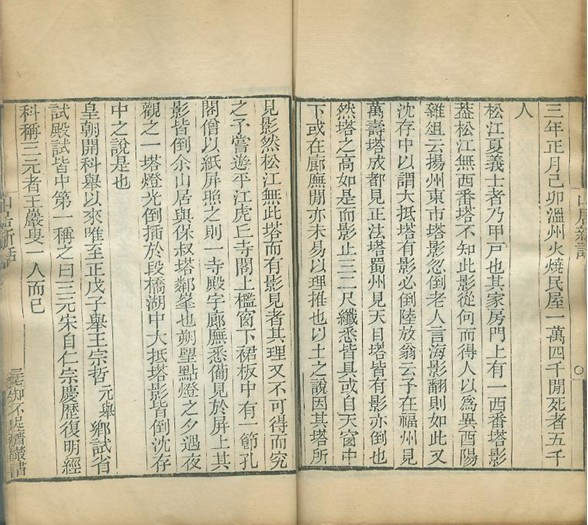 三年正月己卯溫州火燒民屋一萬四千間死者五千
人
松江夏義士者乃甲戶也其家房門上有一西番塔影
葢松江無西番塔不知此影從何而得人以為異酉陽
雜俎云揚州東市塔影忽倒老人言海影翻則如此又
沈存中以謂大抵塔有影必倒陸放翁云予在福州見
萬壽塔成都見正法塔蜀州見天目塔皆有影亦倒也
然塔之高如是而影止三二尺纖悉皆具或自天窗中
下或在廊廡間亦未易以理推也以土之說因其塔所
見影然松江無此塔而有影見者其理又不可得而究
之予嘗遊平江虎丘寺閣上檻窗下裙板中有一節孔
閣僧以紙屏照之則一寺殿宇廊廡悉備見於屏上其
影皆倒余山居與保叔塔鄰峯也朔望點燈之夕過夜
觀之一塔燈光倒插於段橋湖中大抵塔影皆倒沈存
中之說是也
皇朝開科舉以來唯至正戊子舉王宗哲元舉鄉試省
試殿試皆中第一稱之曰三元宋自仁宗慶歷復明經
科稱三元者王巖叟一人而已
山居新話
知不足齋叢書